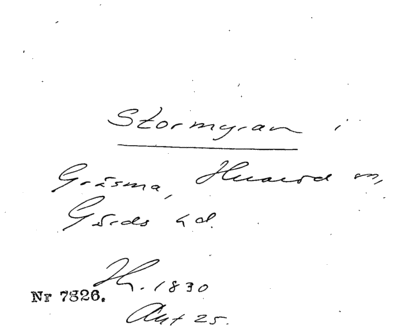 Stormyran i
Gräsma, Huared sn,
Gärds hd.
H. 1830
Nr 7826.
Akt 25.